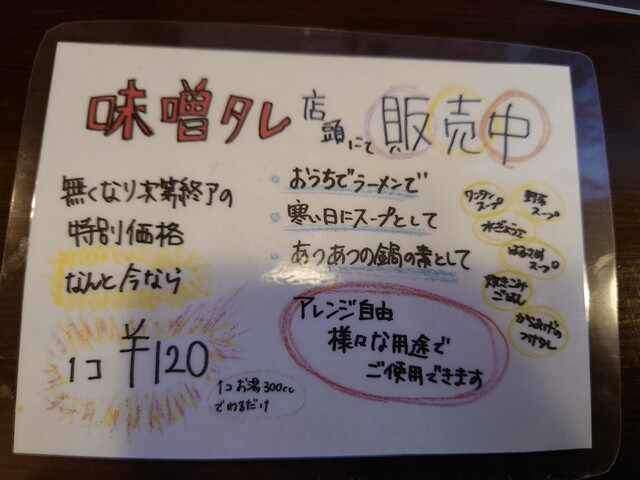 味噌タレ 店頭にて 販売中
無くなり次第終了の
特別価格
なんと今なら
1コ ¥120
1コ お湯300cc
でわるだけ
・おうちでラーメンで
・寒い日にスープとして
・あつあつの鍋の素として
アレンジ自由
様々な用途で
ご使用できます
ワンタン
スープ
野菜
スープ
水ぎょうざ
はるさめ
スープ
炊きこみ
ごはん
からあげの
つけダレ